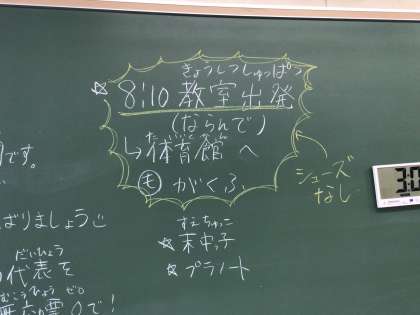 きょうしつしゅっぱつ
☆ 8:10 教室出発
(ならんで)
たいいくかん
↳体育館 へ
㋲ がくふ
シューズ
なし
3:0
です。
ばりましょう
だいひょう
代表を
ゼロ
で!
すえちゅっこ
☆末中っ子
☆プラノート